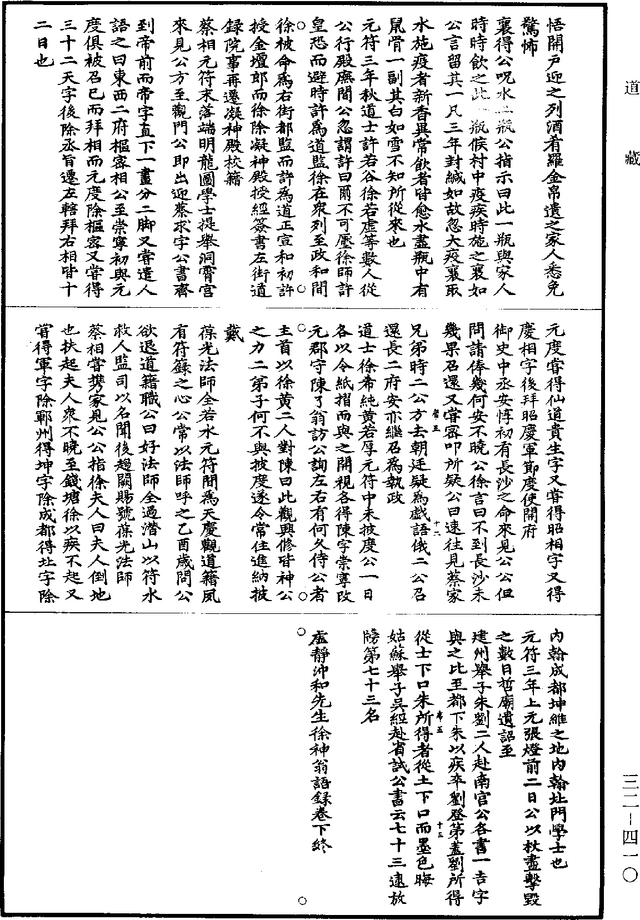 道藏
三二—四一〇
悟開戶迎之列酒肴羅金帛遺之家人悉免
驚怖
襄得公呪水二瓶公指示曰此一瓶與家人
時時飲之此一瓶候村中疫疾時施之襄如
公言留其一凡三年封緘如故忽大疫襄取
水施疫者新香異常飲者皆愈水盡瓶中有
鼠骨一副其白如雪不知所從來也
元符三年秋道士許若谷徐若虛等數人從
公行殿廡間公忽謂許曰爾不可壓徐師許
皇恐而避時許爲道監徐在衆列至政和間
徐被命爲右街都監而許爲道正宣和初許
授金壇郎而徐除凝神殿授經簽書左街道
録院事再遷凝神殿校籍
蔡相元符末落端明龍圖學士提舉洞霄宮
來見公方至觀門公即出迎蔡求字公書齋
到帝前而帝字直下一畫分二脚又嘗遣人
語之曰東西二府樞密相公至崇寧初與元
度俱被召已而拜相而元度除樞密又嘗得
三十二天字後除丞旨遷左轄拜右相皆十
二日也
元度嘗得仙道貴生字又嘗得昭相字又得
慶相字後拜昭慶軍節度使開府
御史中丞安惇初有長沙之命來見公公但
問請俸幾何安不曉公徐言曰不到長沙未
幾果召還又嘗密叩所疑公曰速往見蔡家
兄弟時二公方去朝廷疑爲戲語俄二公召
還長二府安亦繼召爲執政
道士徐希純黄若厚元符中未披度公一日
各以令紙指而與之開視各得陳字崇寧改
元郡守陳了翁訪公詢左右有何久侍公者
主首以徐黄二人對陳曰此觀興修皆神公
之力二弟子何不與披度遂令常住進納披
戴
葆光法師全若水元符間爲天慶觀道籍夙
有符籙之心公常以法師呼之乙酉歲問公
欲退道籍職公曰好法師全過潛山以符水
救人監司以名聞後趨闕賜號葆光法師
蔡相嘗携家見公公指徐夫人曰夫人倒地
也扶起夫人衆不曉至錢塘徐以疾不起又
嘗得軍字除鄆州得坤字除成都得北字除
内翰成都坤維之地内翰北門學士也
元符三年上元張燈前二日公以杖盡擊毀
之數日哲廟遺詔至
建州舉子朱劉二人赴南官公各書一吉字
與之比至都下朱以疾卒劉登第蓋劉所得
從士下口朱所得者從土下口而墨色晦
姑蘇舉子吳經赴省試公書云七十三速放
牓第七十三名
虛靜冲和先生徐神翁語錄卷下終